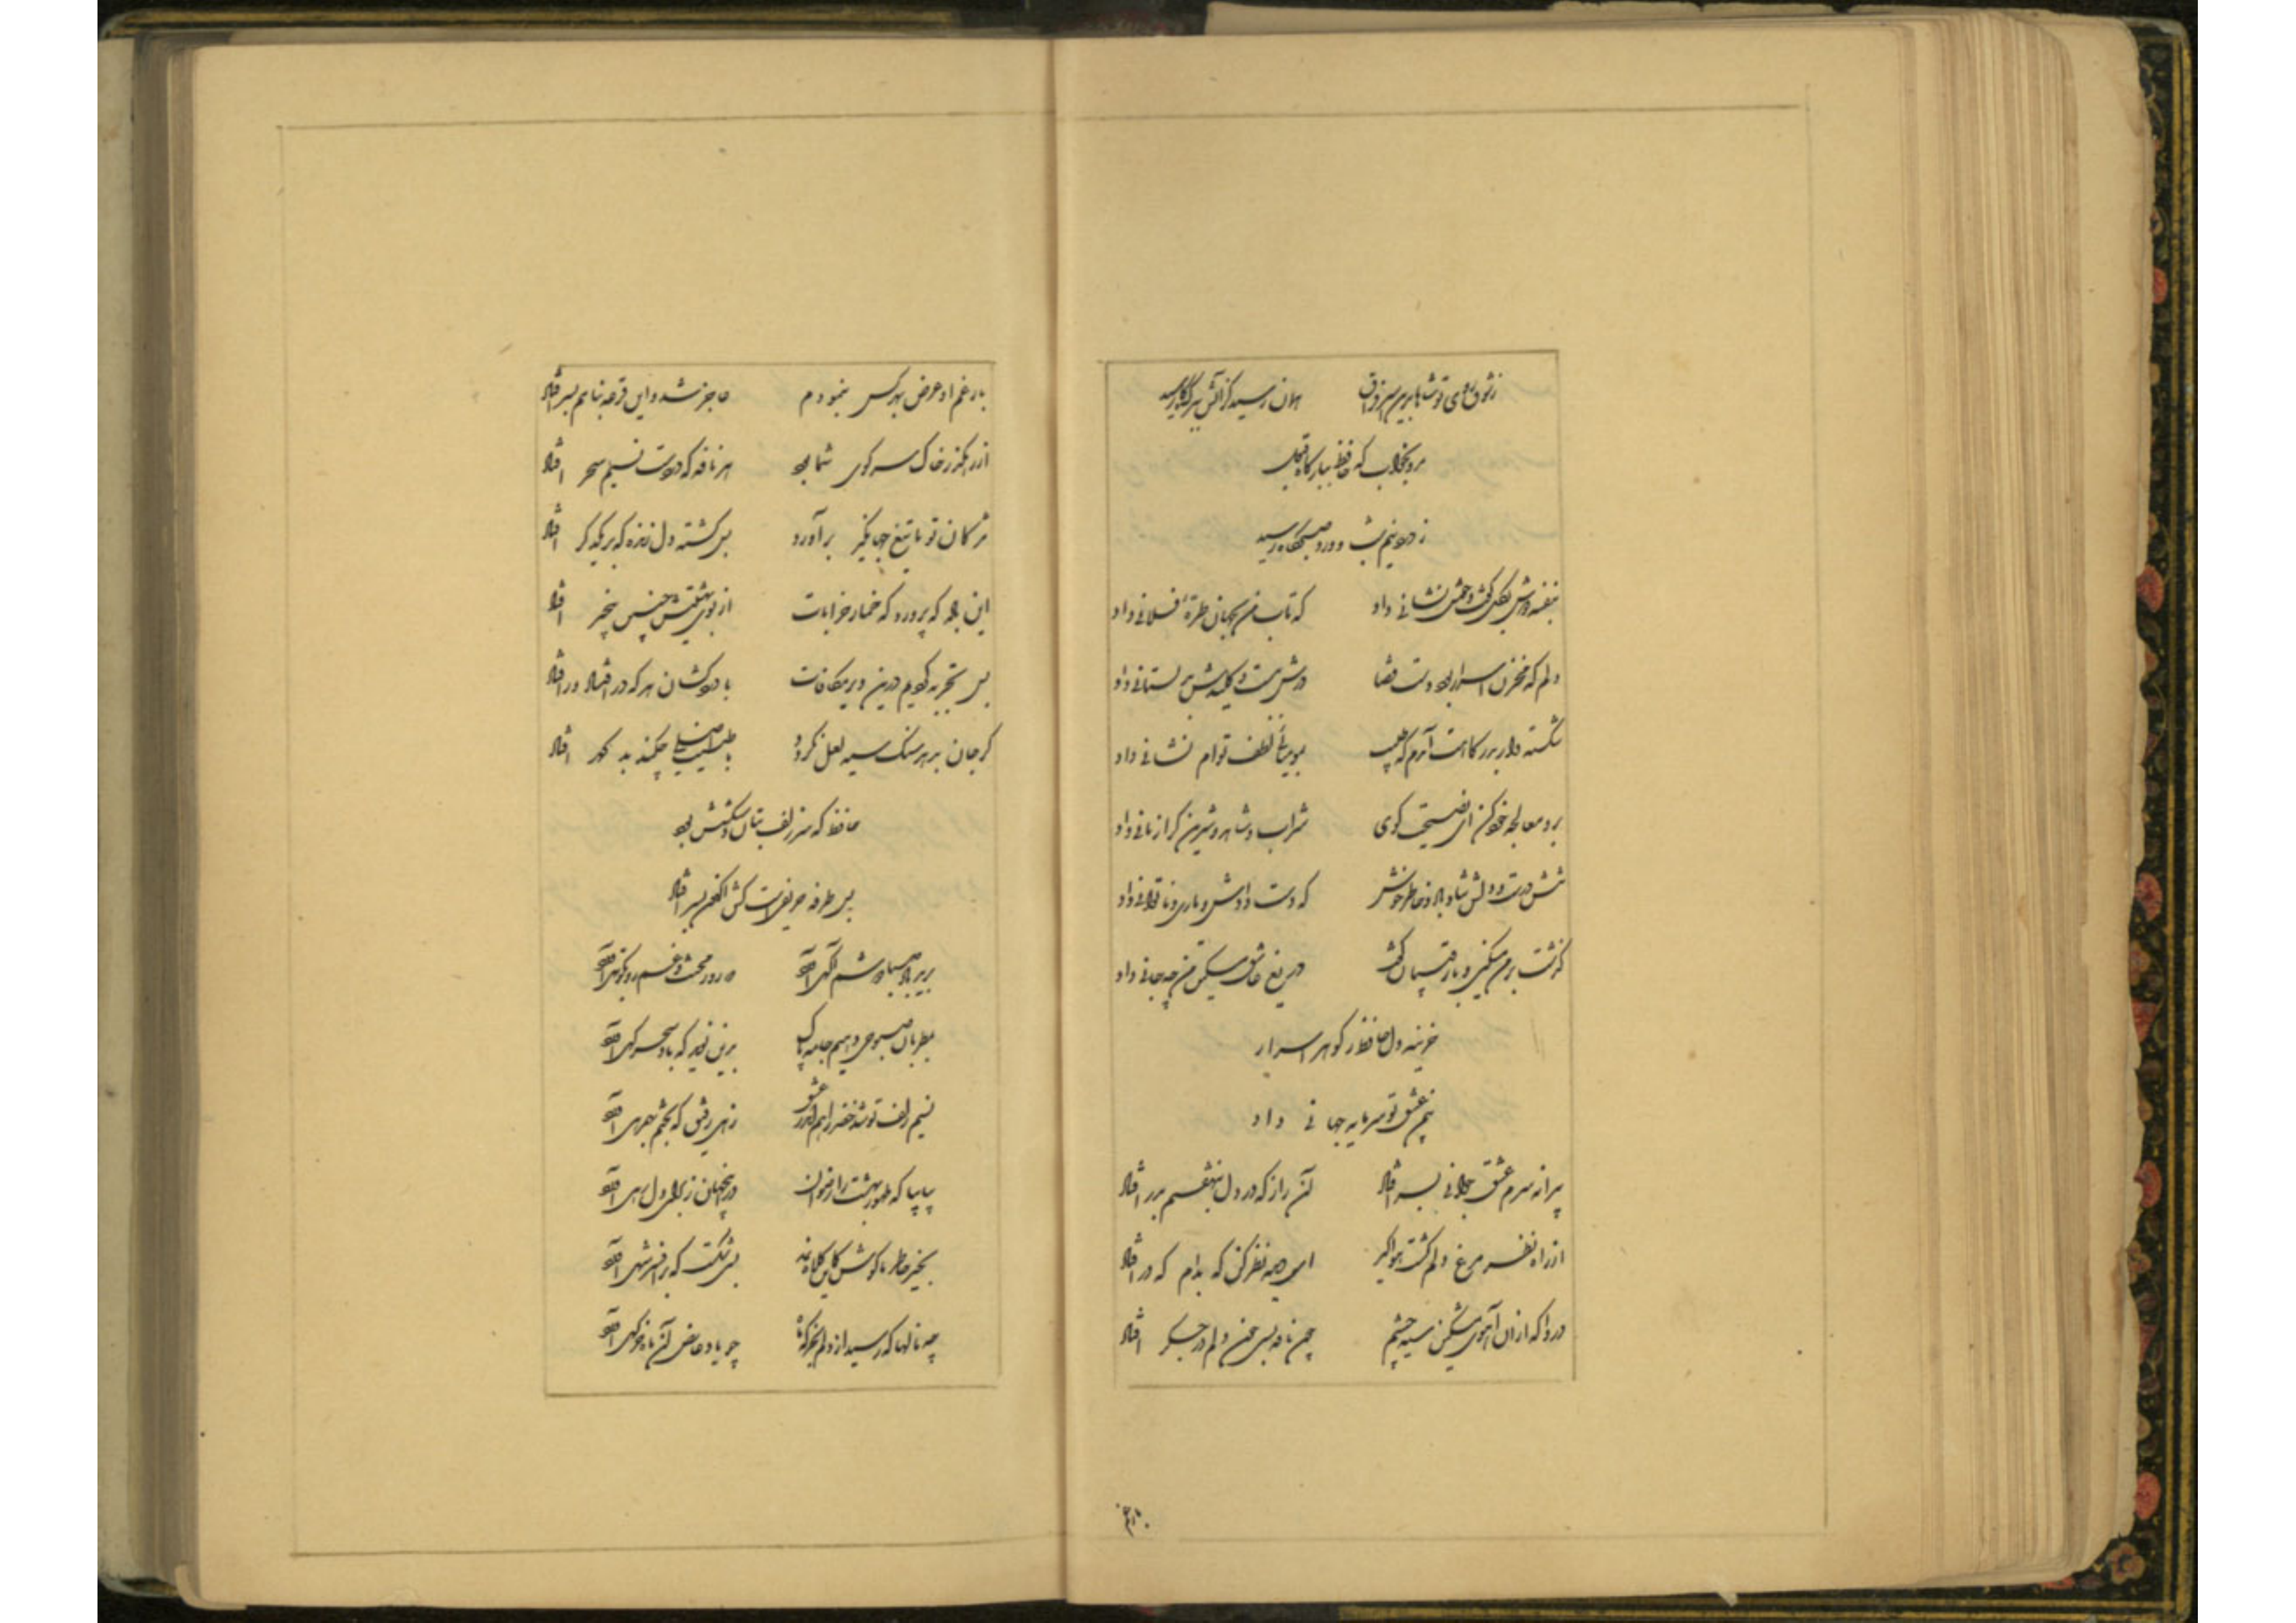 ز شوق روی تو شاها بدین اسیر فراق همان رسید کز آتش ببرگ کاه رسید
مرو بخواب که حافظ ببارگاه قبول
ز ورد نیم شب و درد صبحگاه رسید
بنفشه دوش بگل گفت و خوش نشانی داد که تاب من بجهان طرهٔ فلانی داد
دلم که مخزن اسرار بود دست قضا درش ببست و کلیدش بدلستانی داد
شکسته وار بدرگاهت آمدم که طبیب بمومیائی لطف توام نشانی داد
برو معالجه خود کن ای نصیحت گوی شراب و شاهد شیرین کرا زیانی داد
تنش درست و دلش شاد باد و خاطر خوش که دست دادش و یاری ناتوانی داد
گذشت بر من مسکین و با رقیبان گفت دریغ عاشق مسکین من چه جانی داد
خزینه دل حافظ ز گوهر اسرار
بیمن عشق تو سرمایه جهانی داد
پیرانه سرم عشق جوانی بسر افتاد آن راز که در دل بنهفتم بدر افتاد
از راه نظر مرغ دلم گشت هواگیر ای دیده نظر کن که بدام که در افتاد
دردا که از آن آهوی مشکین سیه چشم چون نافه بسی خون دلم در جگر افتاد
بار غم او عرض بهر کس بنمودم عاجز شد و این قرعه بنام بسر افتاد
از رهگذر خاک سر کوی شما بود هر نافه که در دست نسیم سحر افتاد
مژگان تو تا تیغ جهانگیر برآورد بس کشته دل زنده که بر یکدگر افتاد
این باده که پرورد که خمار خرابات از بوی بهشتیش چنین بیخبر افتاد
بس تجربه کردیم درین دیر مکافات با درد کشان هر که در افتاد ور افتاد
گر جان بدهد سنگ سیه لعل نگردد با طینت اصلی چکند بد گهر افتاد
حافظ که سر زلف بتان دستکشش بود
بس طرفه حریفیست کش اکنون بسر افتاد
برید باد صبا دوشم آگهی آورد که روز محنت و غم رو بکوتهی آورد
بمطربان صبوحی دهیم جامه پاک بدین نوید که باد سحرگهی آورد
نسیم زلف تو شد خضر راهم اندر عشق زهی رفیق که بختم بهمرهی آورد
بیا بیا که تو حور بهشت را رضوان درین جهان ز برای دل رهی آورد
بخیر خاطر ما کوش کاین کلاه نمد بسی شکست که بر افسر شهی آورد
چه نالها که رسید از دلم بخرگه ماه چو یاد عارض آن ماه خرگهی آورد